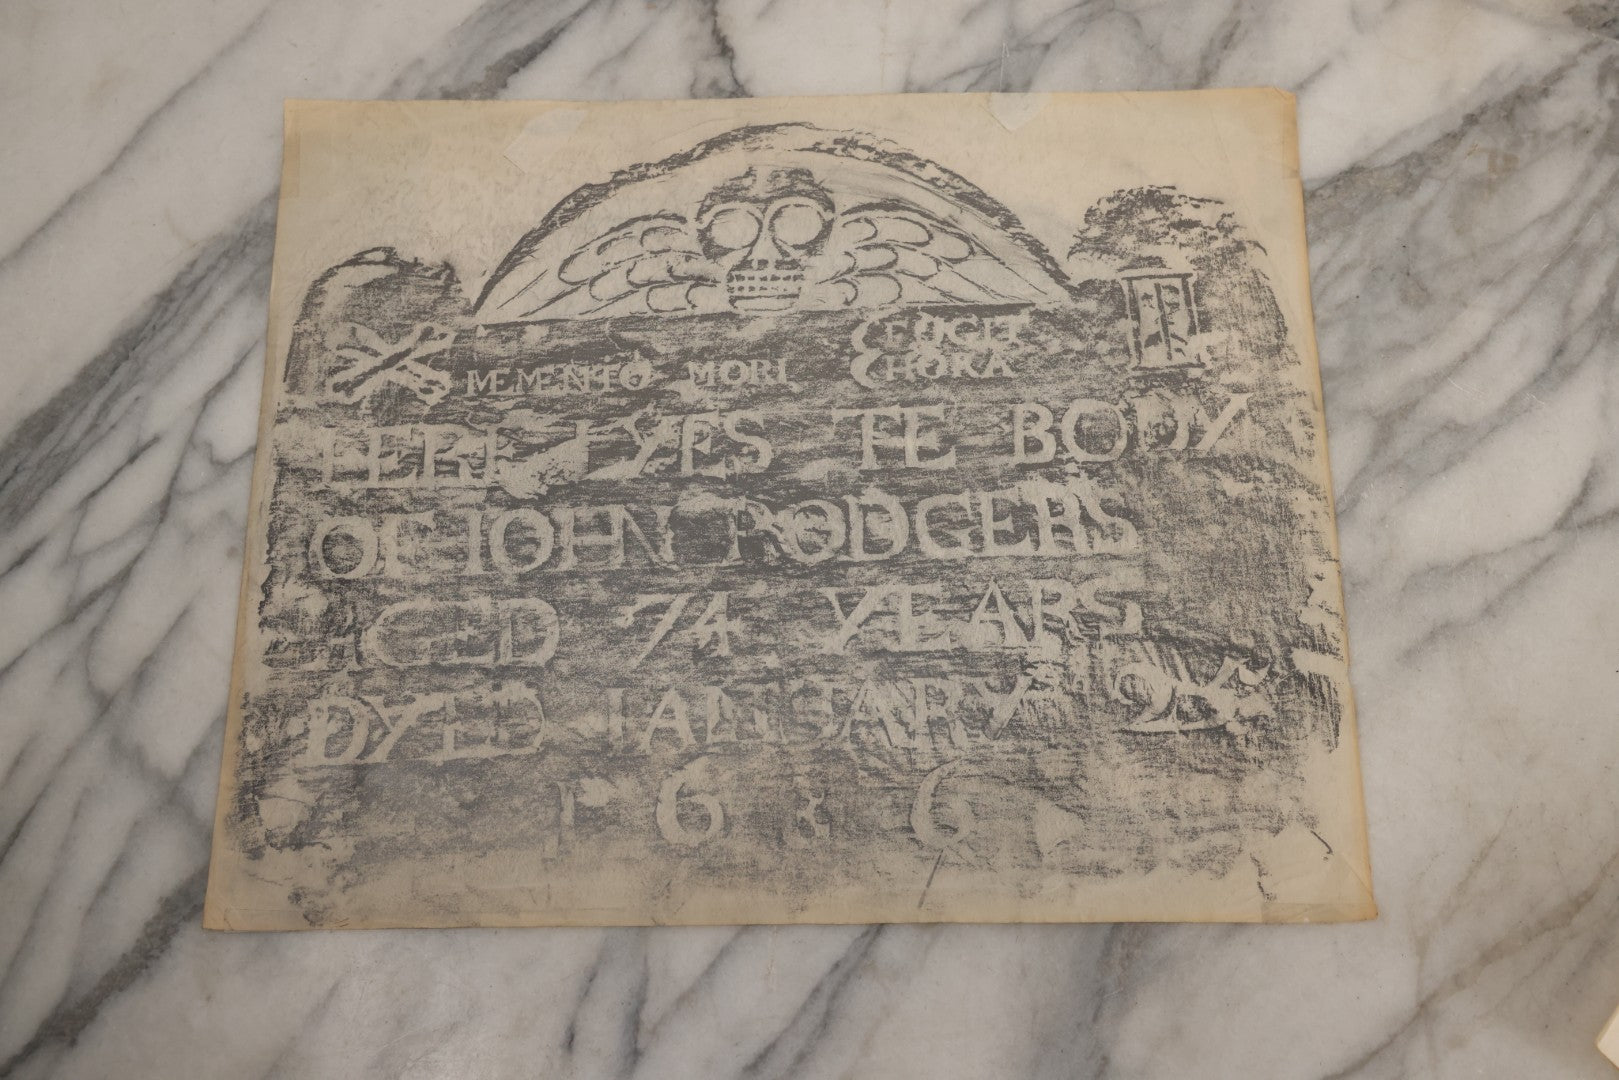 MEMENTO MORI FUGIT HORA
HERE LYES TE BODY
OF IOHN RODGERS
AGED 74 YEARS
DYED IANUARY 25
1 6 8 6